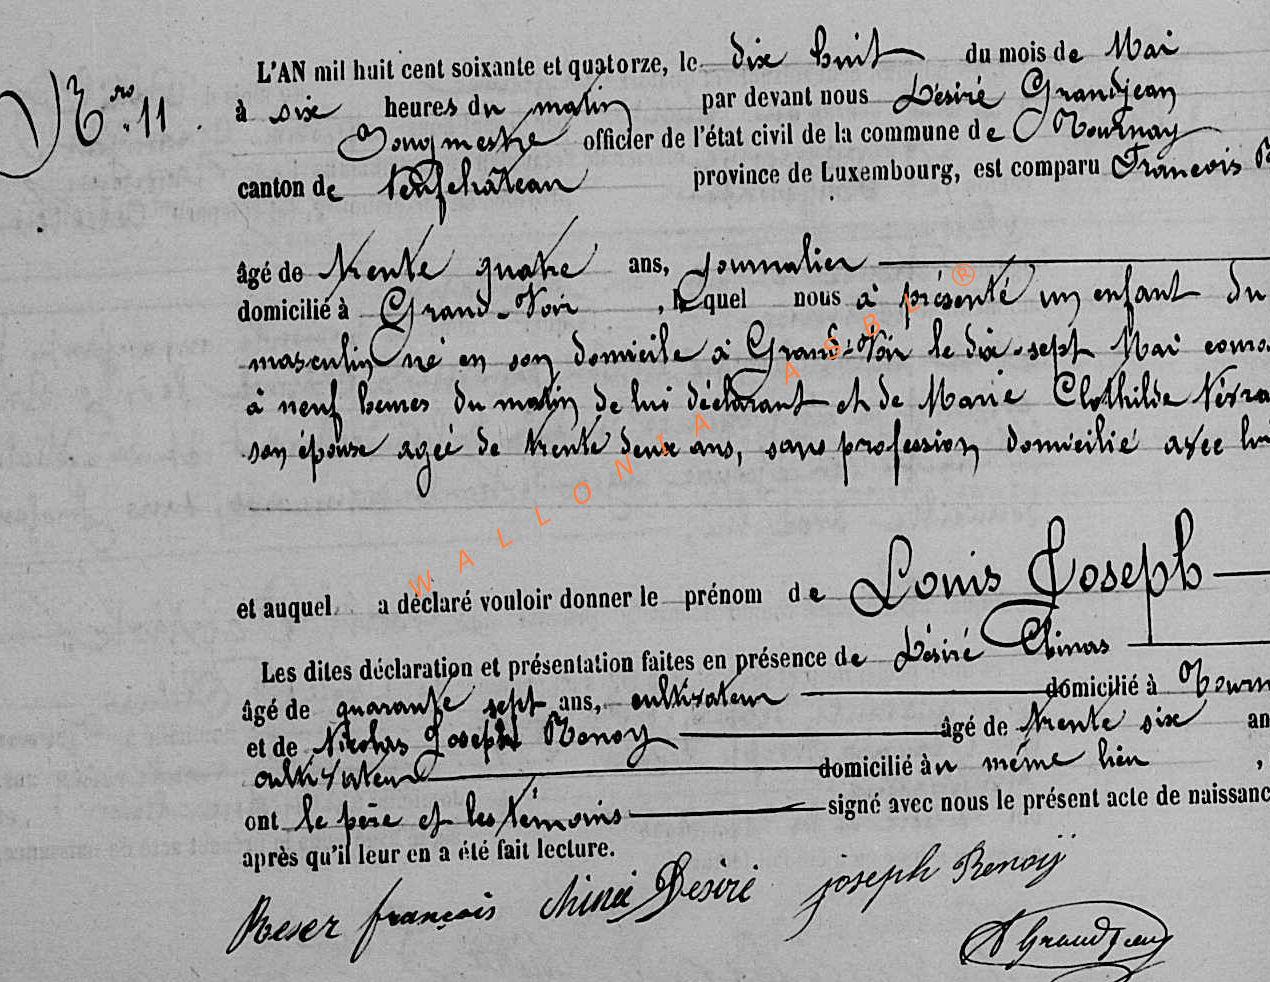 L'AN mil huit cent soixante et quatorze, le dix huit du mois de Mai
Nro. 11.
à six heures du matin par devant nous Désiré Grandjean
Bourgmestre officier de l'état civil de la commune de Tournay
canton de Neufchâteau province de Luxembourg, est comparu François
âgé de trente quatre ans, journalier
domicilié à Grand-Voir, lequel nous a présenté un enfant du
masculin né en son domicile à Grand-Voir le dix-sept Mai
à neuf heures du matin de lui déclarant et de Marie Clothilde
son épouse agée de trente deux ans, sans profession domicilié avec lui
et auquel a déclaré vouloir donner le prénom de Louis Joseph
Les dites déclaration et présentation faites en présence de Désiré
âgé de quarante sept ans, cultivateur domicilié à
et de Nicolas Joseph Renoy âgé de trente six
cultivateur domicilié à même lieu,
ont le père et les témoins signé avec nous le présent acte de
après qu'il leur en a été fait lecture.
françois Désiré joseph Renoy
Grandjean
WALLONIA ASBL ®